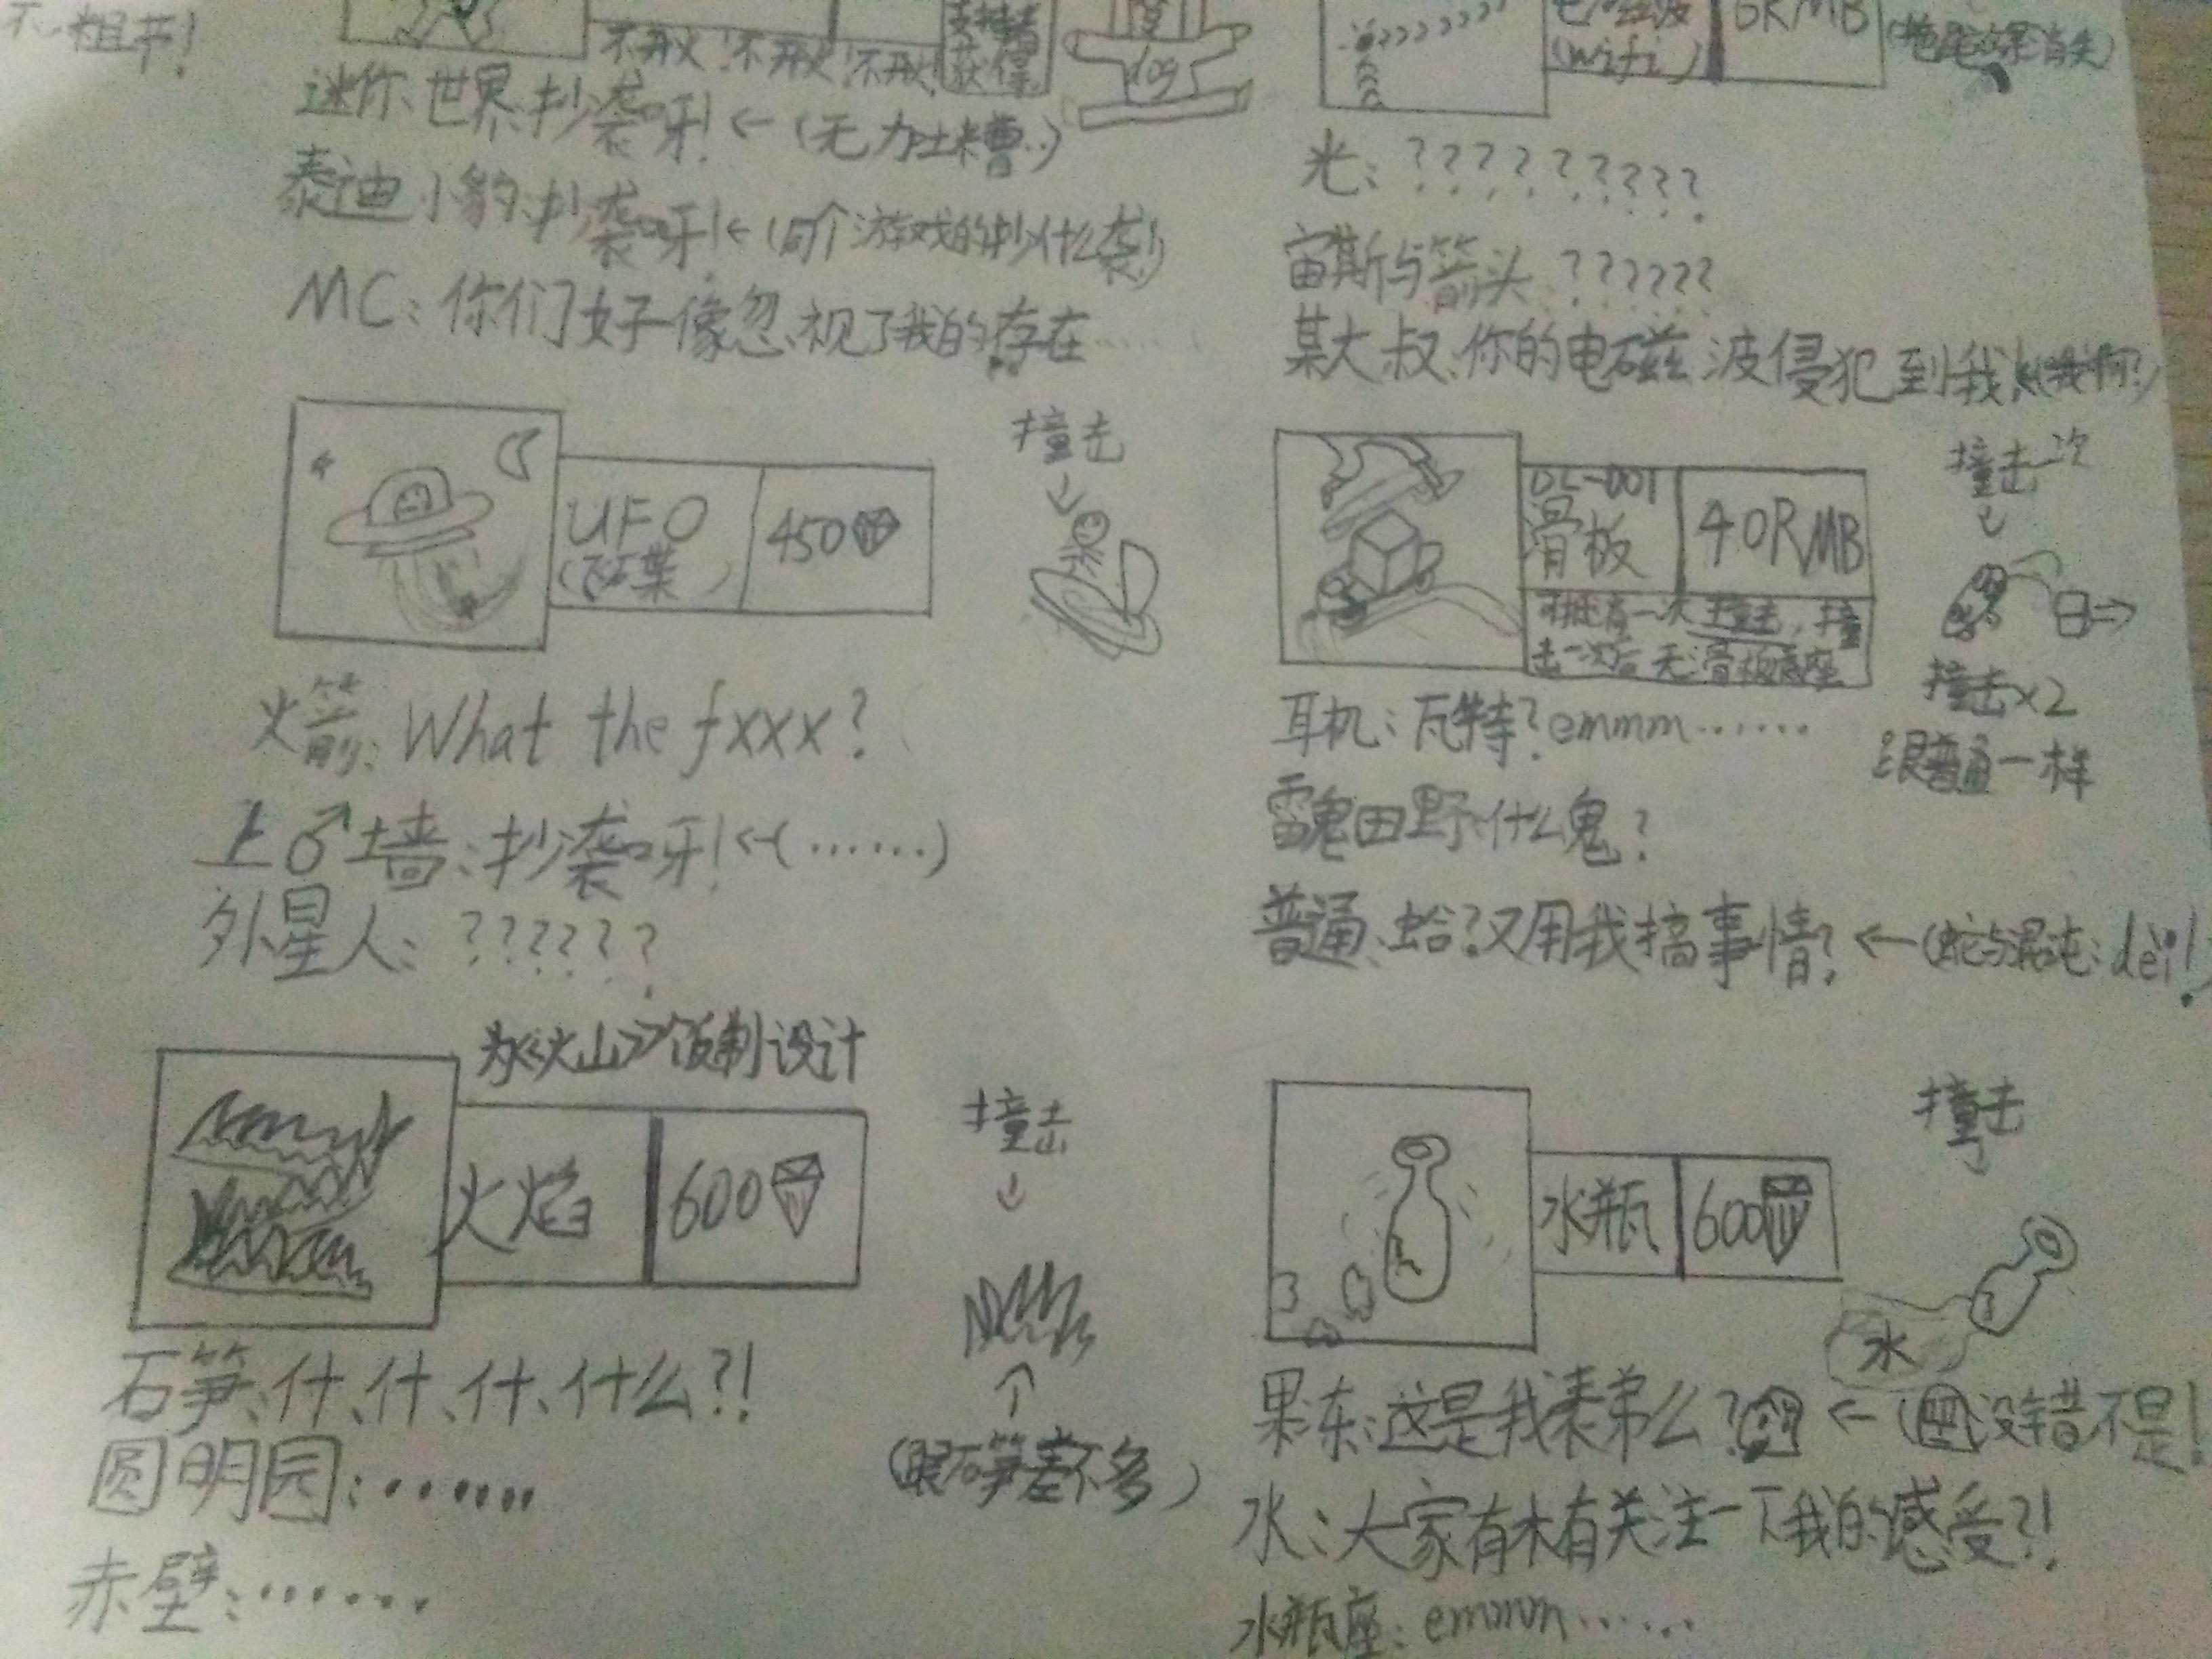 不粗并!
不开火!不开火!不开火!
支持者
获得
dog
迷你世界:抄袭呀!←(无力吐槽..)
泰迪小豹:抄袭呀!←(同个游戏的抄什么袭!)
MC:你们好像忽视了我的存在......
(wifi)
6RMB
光:?????????
宙斯与箭头:??????
某大叔:你的电磁波侵犯到我
UFO
450
撞击
火箭:What the fxxx?
上♂墙:抄袭呀!←(......)
外星人:??????
DL-001
滑板
40RMB
可抵有一次撞击,撞
击一次后无滑板底座
撞击一次
撞击×2
跟普通一样
耳机:瓦特?emmm......
雷鬼田野:什么鬼?
普通:蛤?又用我搞事情?←(蛇与混沌:dei!
为《火山》饭制设计
火焰
600
撞击
(跟石笋差不多)
石笋:什、什、什、什么?!
圆明园:......
赤壁:......
水瓶
600
撞击
水
果冻:这是我表弟么?←(没错不是!
水:大家有木有关注一下我的感受?!
水瓶座:emmm......